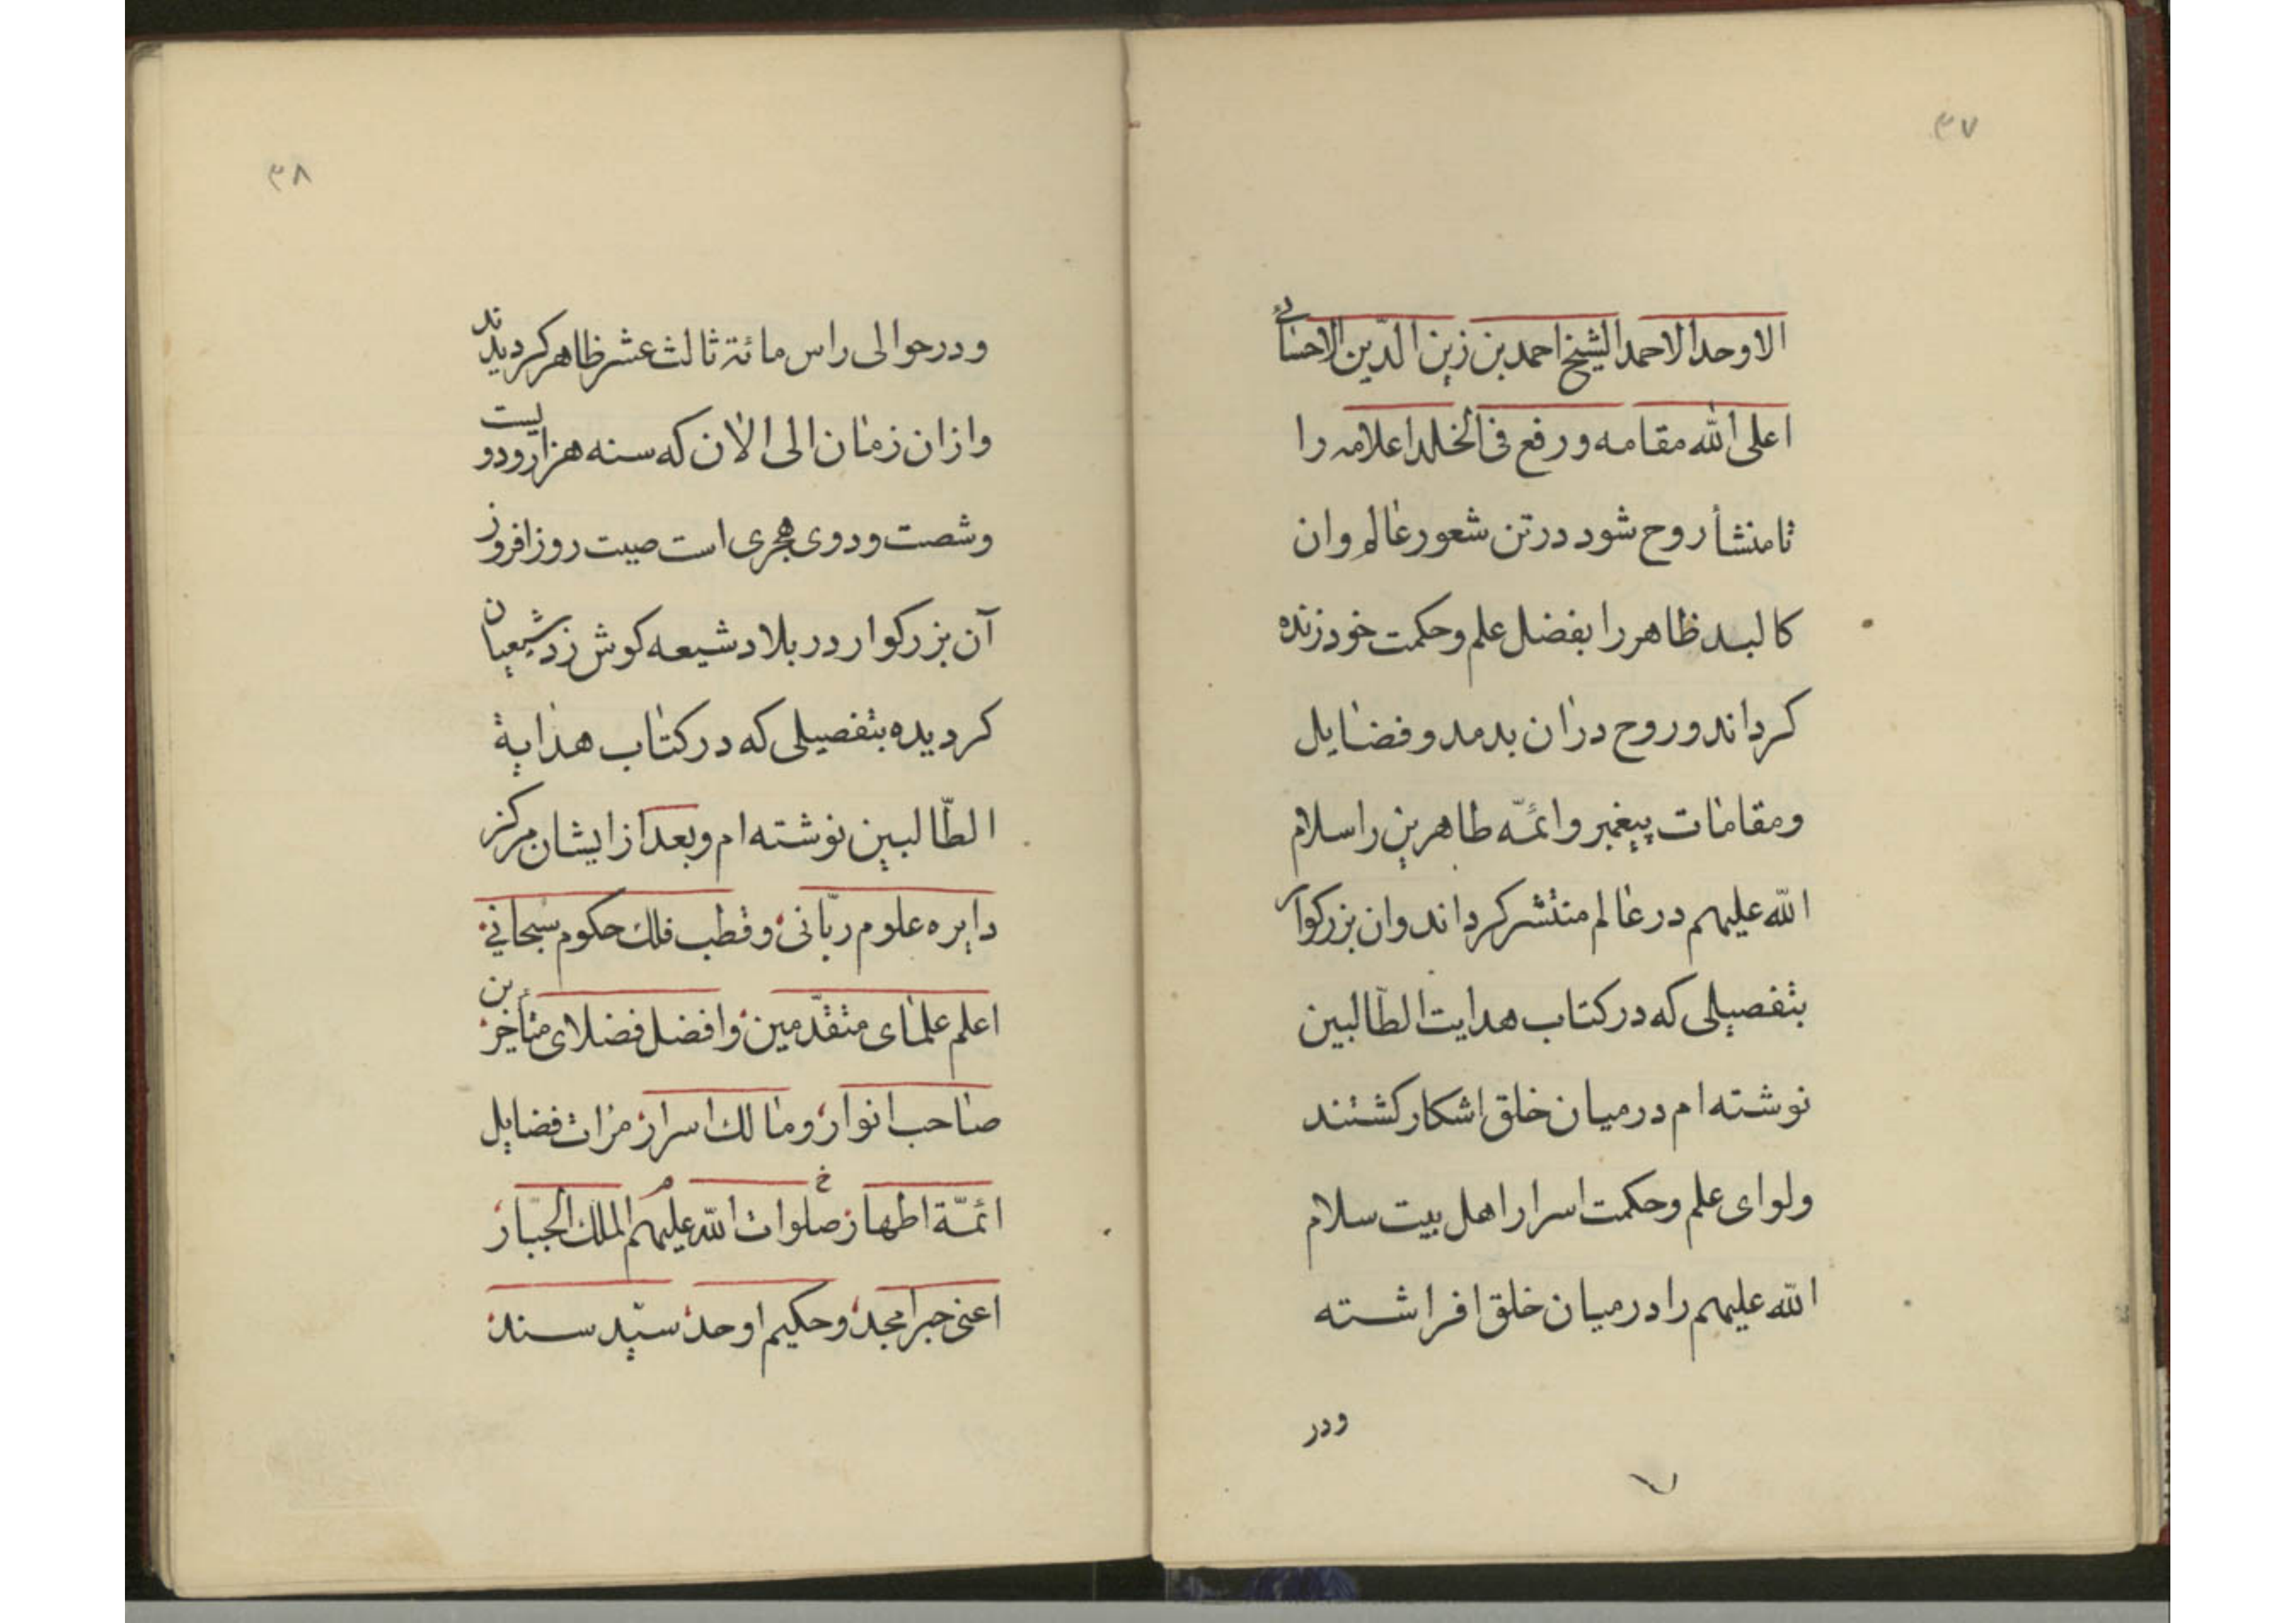 ۳۷
الاوحد الاحمد الشیخ احمد بن زین الدّین الاحسائی
اعلی الله مقامه و رفع فی الخلد اعلامه را
تا منشأ روح شود در تن شعور عالم وان
کالبد ظاهر را بفضل علم و حکمت خود زنده
کرداند و روح دران بدمد و فضایل
ومقامات پیغمبر وائمّه طاهرین را سلام
الله علیهم در عالم منتشر کرداند وان بزرکوار
بتفصیلی که در کتاب هدایت الطّالبین
نوشته ام در میان خلق اشکار کشتند
ولوای علم وحکمت اسرار اهل بیت سلام
الله علیهم را در میان خلق افراشته
ودر
۳۸
ودر حوالی راس مائة ثالث عشر ظاهر کردیدند
وازان زمان الی الان که سنه هزار ودویست
وشصت ودوی هجری است صیت روز افروز
آن بزرکوار در بلاد شیعه کوش زد شیعیان
کردیده بتفصیلی که در کتاب هدایة
الطّالبین نوشته ام وبعد از ایشان مرکز
دایره علوم ربّانی وقطب فلك حکوم سبحانی
اعلم علمای متقدّمین وافضل فضلای متأخرین
صاحب انوار ومالك اسرار مرات فضایل
ائمّة اطهار صلوات الله علیهم الملك الجبّار
اعنی حبر امجد وحکیم اوحد سیّد سند